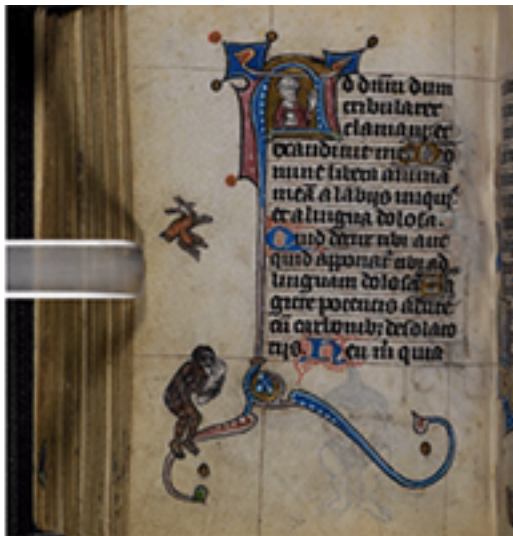 Ad dñm dum
tribularer
clamaui et
exaudiuit me Do
mine libera animā
meā a labijs iniquis
et a lingua dolosa.
Quid detur tibi aut
quid apponat' tibi ad
linguam dolosā Sa
gitte potentis acute
cū carbonib; desolato
rijs. Heu m̃ quia